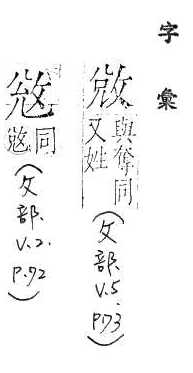 字彙
敚 與奪同又姓(攵部.V.5.P73)
同(攵部.V.2.P.92)